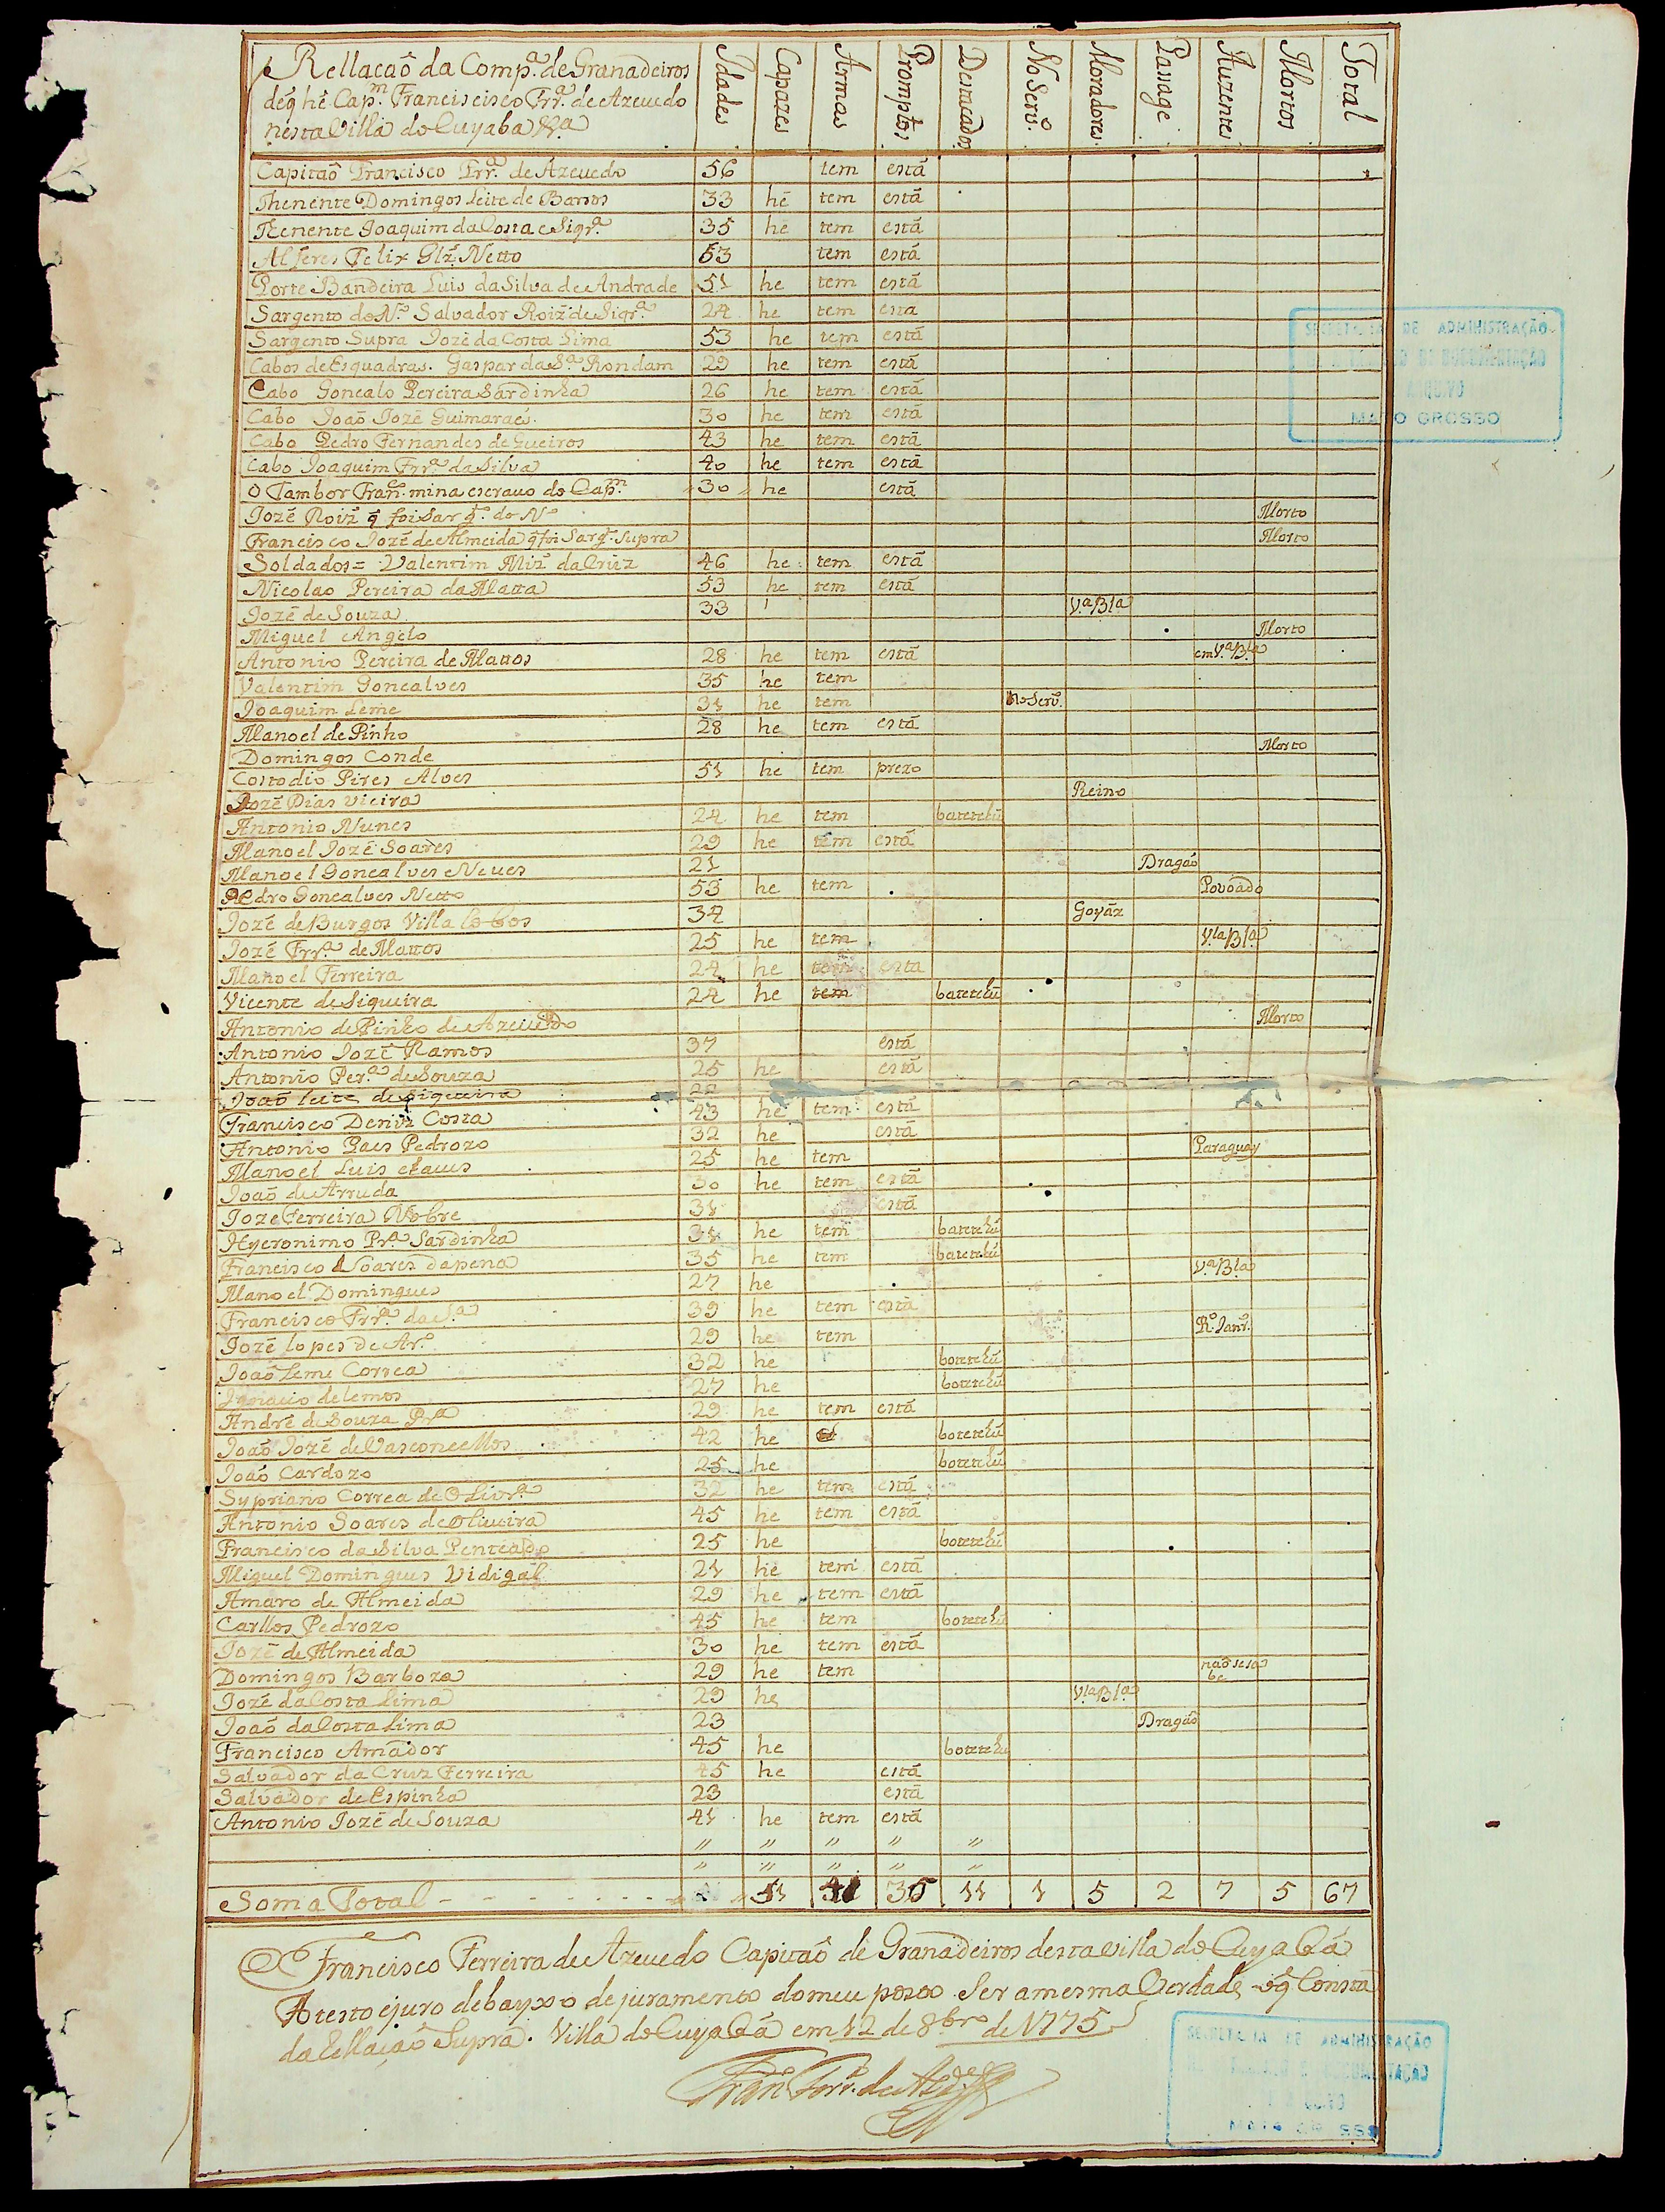 Rellacaõ da Comp.ª de Granadeiros
deq̃ he Cap.m Franciscisco Frr.ª de Azeuedo
nesta Villa do Cuyaba &.ª
Idades Capazes Armas Promptos Destacados No Serv.º Moradores Passage Auzentes Mortos Total
Capitaõ Francisco Frr.ª de Azeuedo 56 tem está
Thenente Domingos Leite de Barros 33 he tem está
Tenente Joaquim da Costa e Siqr.ª 35 he tem está
Alferes Felix Glz̃ Netto 53 tem está
Porte Bandeira Luis da Silva de Andrade 51 he tem está
Sargento do N.º Salvador Roiz̃ de Siqr.ª 24 he tem esta
Sargento Supra Jozé da Costa Lima 53 he tem está
Cabos de Esquadras. Gaspar da S.ª Rondam 29 he tem está
Cabo Goncalo Pereira Sardinha 26 he tem está
Cabo Joaõ Jozé Guimaraẽs. 30 he tem está
Cabo Pedro Fernandes de Gueiros 43 he tem está
Cabo Joaquim Frr.ª da Silva 40 he tem está
O Tambor Fran.co mina escrauo do Cap.m 30 he está
Jozé Roiz̃ q̃ foi Sarg.to do N.º Morto
Francisco Jozé de Almeida q̃ foi Sarg.to Supra Morto
Soldados = Valentim Miz̃ da Cruz 46 he tem está
Nicolao Pereira da Matta 53 he tem está
Jozé de Souza 33 V.ª B.la
Miguel Angelo Morto
Antonio Pereira de Mattos 28 he tem está em V.ª B.la
Valentim Goncalves 35 he tem
Joaquim Leme 31 he tem No Serv.º
Manoel de Pinho 28 he tem está
Domingos Conde Morto
Costodio Pires Alves 51 he tem prezo
Jozé Dias Vieira Reino
Antonio Nunes 24 he tem botetehú
Manoel Jozé Soares 29 he tem está
Manoel Goncalves Neues 21 Dragaõ
Pedro Goncalves Netto 53 he tem Povoado
Jozé de Burgos Villa Lobos 34 Goyáz
Jozé Frr.ª de Mattos 25 he tem V.la B.la
Manoel Ferreira 24 he tem esta
Vicente de Siqueira 24 he tem botetehú
Antonio de Pinho de Azeuedo Morto
Antonio Jozé Ramos 37 está
Antonio Per.ª de Souza 25 he está
Joaõ Leite de Siqueira 22
Francisco Deniz Costa 43 he tem está
Antonio Paes Pedrozo 32 he está
Manoel Luis chaues 25 he tem Paraguay
Joaõ de Arruda 30 he tem está
Joze Ferreira Nobre 31 está
Hyeronimo Pr.ª Sardinha 31 he tem botetehú
Francisco Soares dapena 35 he tem botetehú
Manoel Domingues 27 he V.ª B.la
Francisco Frr.ª da S.ª 39 he tem está
Jozé lopes de Ar.º 29 he tem R.º Janr.º
Joaõ Leme Correa 32 he botetehú
Ignacio de lemos 27 he botetehú
André de Souza Pr.ª 29 he tem está
Joaõ Jozé de Vasconcellos 42 he botetehú
Joaõ Cardozo 25 he botetehú
Sypriano Correa de Olivr.ª 32 he tem está
Antonio Soares de Oliueira 45 he tem está
Francisco da Silva Penteado 25 he botetehú
Miguel Domingues Vidigal 21 he tem está
Amaro de Almeida 29 he tem está
Carllos Pedrozo 45 he tem botetehú
Jozé de Almeida 30 he tem está
Domingos Barboza 29 he tem naõ se sabe
Jozé da Costa Lima 29 he V.la B.la
Joaõ da Costa Lima 23 Dragaõ
Francisco Amador 45 he botetehú
Salvador da Cruz Ferreira 45 he está
Salvador de Espinha 23 está
Antonio Jozé de Souza 41 he tem está
" " " " "
" " " " "
Soma Total 51 41 35 11 1 5 2 7 5 67
Francisco Ferreira de Azeuedo Capitaõ de Granadeiros desta villa do Cuyabá
Atesto ejuro debayxo dejuramento domeu posto Ser amesma Verdade oq̃ Consta
da Rellaçaõ Supra. Villa do Cuyabá em 12 de 8bro de 1775
Fran.co Ferr.ª de Azd.º
MATO GROSSO